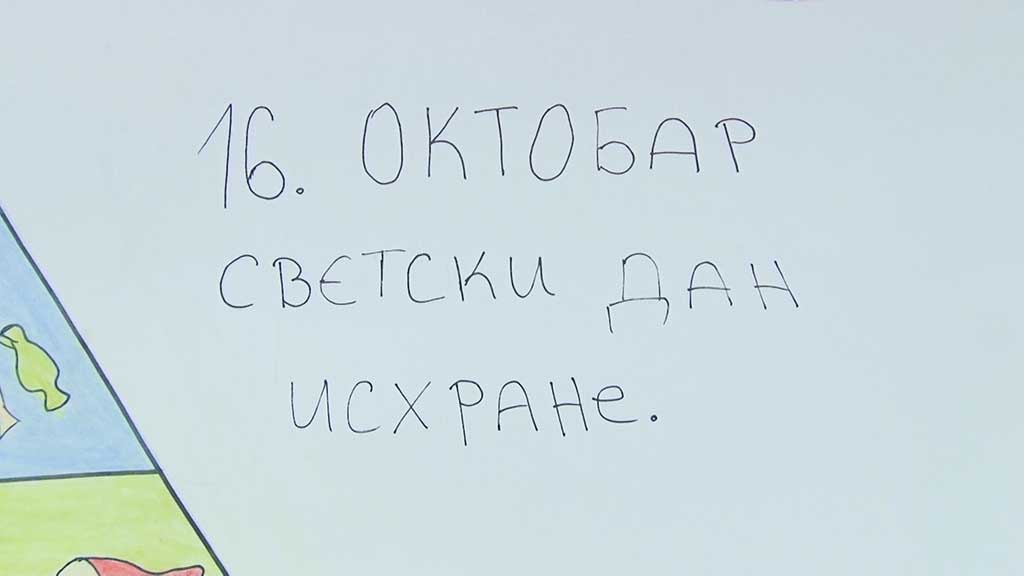 16. ОКТОБАР
СВЕТСКИ ДАН
ИСХРАНе.